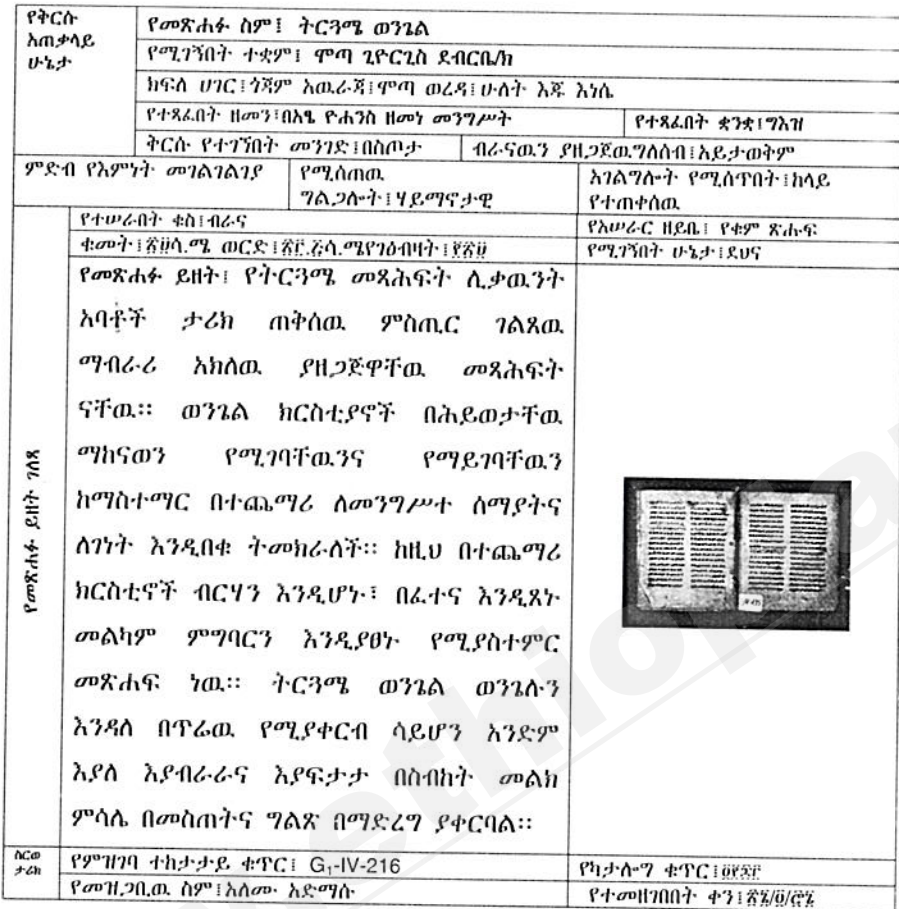 የቅርሱ
አጠቃላይ
ሁኔታ
የመጽሐፉ ስም፤ ትርጓሜ ወንጌል
የሚገኝበት ተቋም፤ ሞጣ ጊዮርጊስ ደብርቤ/ክ
ክፍለ ሀገር፤ጎጃም አዉራጃ፤ሞጣ ወረዳ፤ሁለት እጁ እነሴ
የተጻፈበት ዘመን፤በአፄ ዮሐንስ ዘመነ መንግሥት የተጻፈበት ቋንቋ፤ግእዝ
ቅርሱ የተገኘበት መንገድ፤በስጦታ ብራናዉን ያዘጋጀዉግለሰብ፤አይታወቅም
ምድብ የእምነት መገልገልገያ የሚሰጠዉ አገልግሎት የሚሰጥበት፤ከላይ
ግልጋሎት፤ሃይማኖታዊ የተጠቀሰዉ
የተሠራበት ቁስ፤ብራና የአሠራር ዘይቤ፤ የቁም ጽሑፍ
ቁመት፤ ወርድ፤ የሚገኝበት ሁኔታ፤ደህና
የመጽሐፉ ይዘት ገለጻ
የመጽሐፉ ይዘት፤ የትርጓሜ መጻሕፍት ሊቃዉንት
አባቶች ታሪክ ጠቅሰዉ ምስጢር ገልጸዉ
ማብራሪ አክለዉ ያዘጋጅዋቸዉ መጻሕፍት
ናቸዉ፡፡ ወንጌል ክርስቲያኖች በሕይወታቸዉ
ማከናወን የሚገባቸዉንና የማይገባቸዉን
ከማስተማር በተጨማሪ ለመንግሥተ ሰማያትና
ለገነት እንዲበቁ ትመክራለች፡፡ ከዚህ በተጨማሪ
ክርስቲኖች ብርሃን እንዲሆኑ፤ በፈተና እንዲጸኑ
መልካም ምግባርን እንዲያፀኑ የሚያስተምር
መጽሐፍ ነዉ፡፡ ትርጓሜ ወንጌል ወንጌሉን
እንዳለ በጥሬዉ የሚያቀርብ ሳይሆን አንድም
እያለ እያብራራና እያፍታታ በስብከት መልክ
ምሳሌ በመስጠትና ግልጽ በማድረግ ያቀርባል፡፡
ስርወ
ታሪክ
የምዝገባ ተከታታይ ቁጥር፤ G₁-IV-216 የካታሎግ ቁጥር፤
የመዝጋቢዉ ስም፤አለሙ አድማሱ የተመዘገበበት ቀን፤